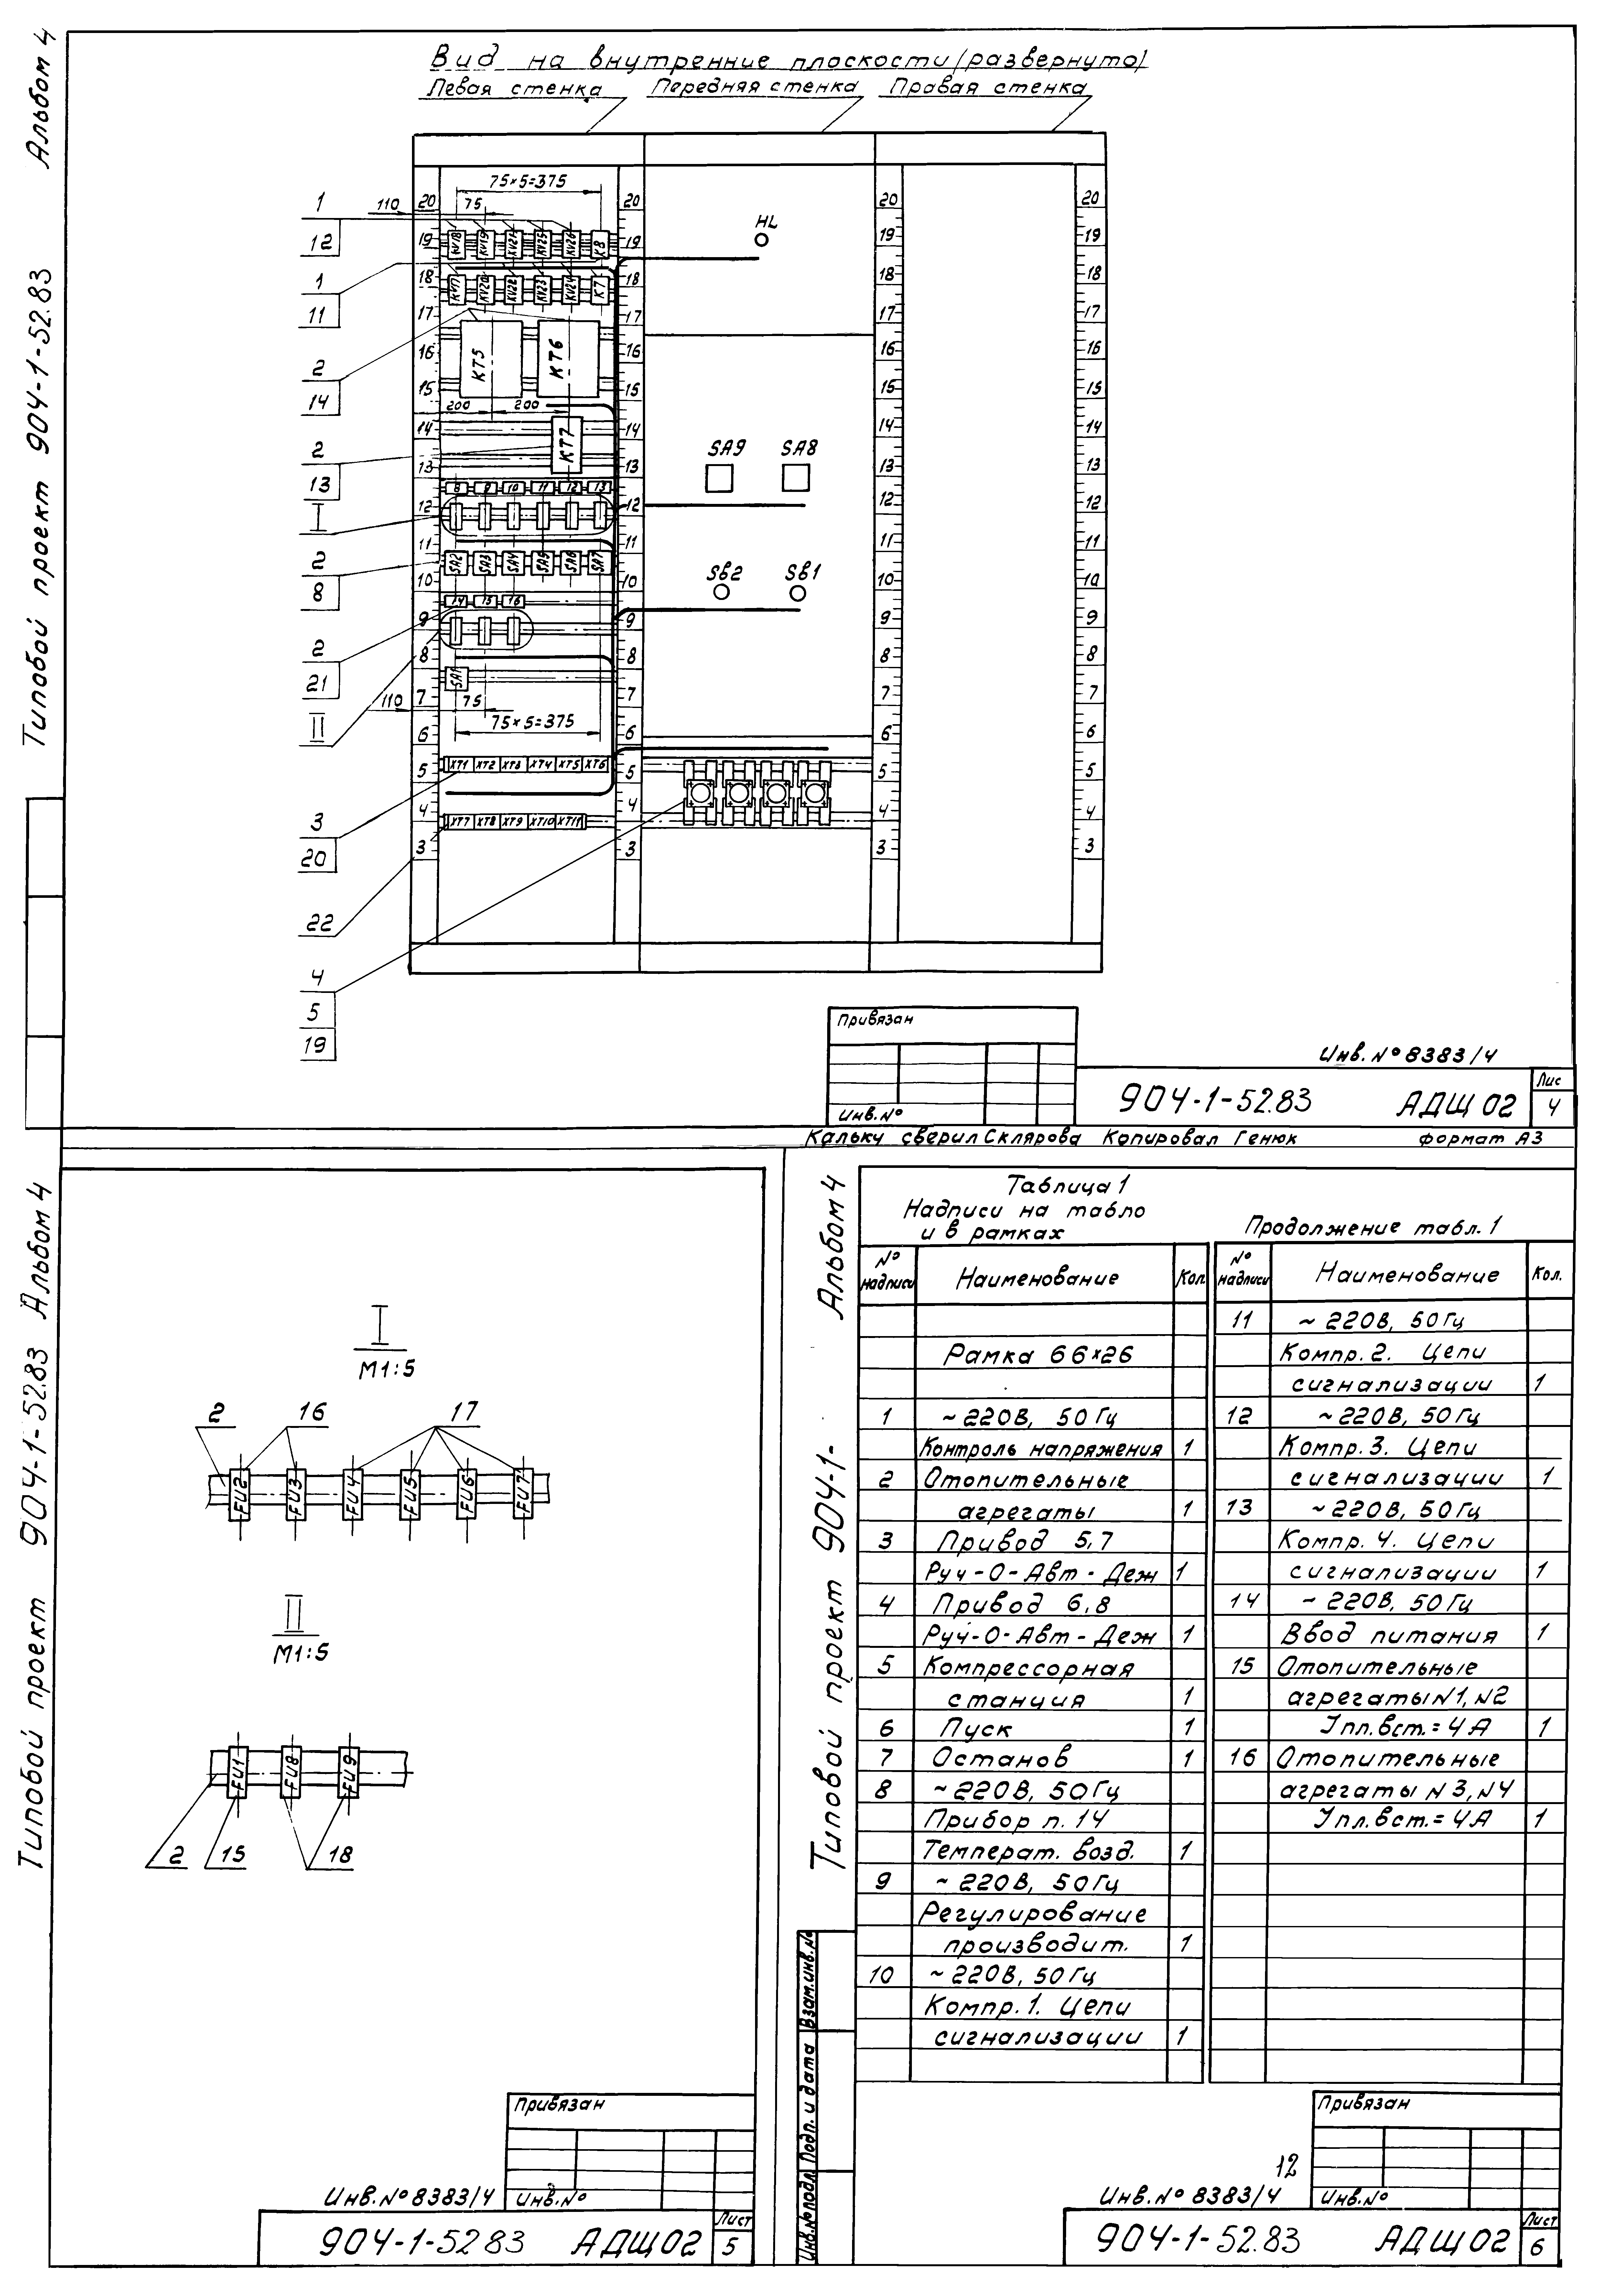 Альбом 4
Типовой проект 904-1-52.83
Вид на внутренние плоскости (развернуто)
Левая стенка Передняя стенка Правая стенка
75×5=375
110 75
1
12
1
11
2
14
2
13
I
2
8
2
21
II
3
20
22
4
5
19
20 19 18 17 16 15 14 13 12 11 10 9 8 7 6 5 4 3
20 19 18 17 16 15 14 13 12 11 10 9 8 7 6 5 4 3
20 19 18 17 16 15 14 13 12 11 10 9 8 7 6 5 4 3
20 19 18 17 16 15 14 13 12 11 10 9 8 7 6 5 4 3
KV18 KV19 KV21 KV25 KV26 K8
KV17 KV20 KV22 KV23 KV24 K7
KT5 KT6
200 200
KT7
8 9 10 11 12 13
SA2 SA3 SA4 SA5 SA6 SA7
14 15 16
SA1
110 75
75×5=375
XT1 XT2 XT3 XT4 XT5 XT6
XT7 XT8 XT9 XT10 XT11
HL
SA9 SA8
SB2 SB1
Привязан
Инв.№
Инв.№ 8383/4
904-1-52.83 АДЩ 02
Лис
4
Кальку сверил Склярова Копировал Генюк формат А3
Типовой проект 904-1-52.83 Альбом 4
I
М1:5
2 16 17
FU2 FU3 FU4 FU5 FU6 FU7
II
М1:5
FU1 FU8 FU9
2 15 18
Привязан
Инв.№ 8383/4 Инв.№
904-1-52 83 АДЩ 02
Лист
5
Типовой проект 904-1- Альбом 4
Таблица 1
Надписи на табло
и в рамках
№ надписи Наименование Кол.
Рамка 66×26
1 ~ 220В, 50 Гц
Контроль напряжения 1
2 Отопительные
агрегаты 1
3 Привод 5,7
Руч-О-Авт-Деж 1
4 Привод 6,8
Руч-О-Авт-Деж 1
5 Компрессорная
станция 1
6 Пуск 1
7 Останов 1
8 ~ 220В, 50 Гц
Прибор п. 14
Температ. возд. 1
9 ~ 220В, 50 Гц
Регулирование
производит. 1
10 ~ 220В, 50 Гц
Компр. 1. Цепи
сигнализации 1
Продолжение табл. 1
№ надписи Наименование Кол.
11 ~ 220В, 50 Гц
Компр. 2. Цепи
сигнализации 1
12 ~ 220В, 50 Гц
Компр. 3. Цепи
сигнализации 1
13 ~ 220В, 50 Гц
Компр. 4. Цепи
сигнализации 1
14 ~ 220В, 50 Гц
Ввод питания 1
15 Отопительные
агрегаты №1, №2
Iпл.вст.= 4А 1
16 Отопительные
агрегаты №3, №4
Iпл.вст.= 4А 1
Взам.инв.№
Подп. и дата
Инв.№ подл.
Привязан
12
Инв.№ 8383/4 Инв.№
904-1-52.83 АДЩ 02
Лист
6